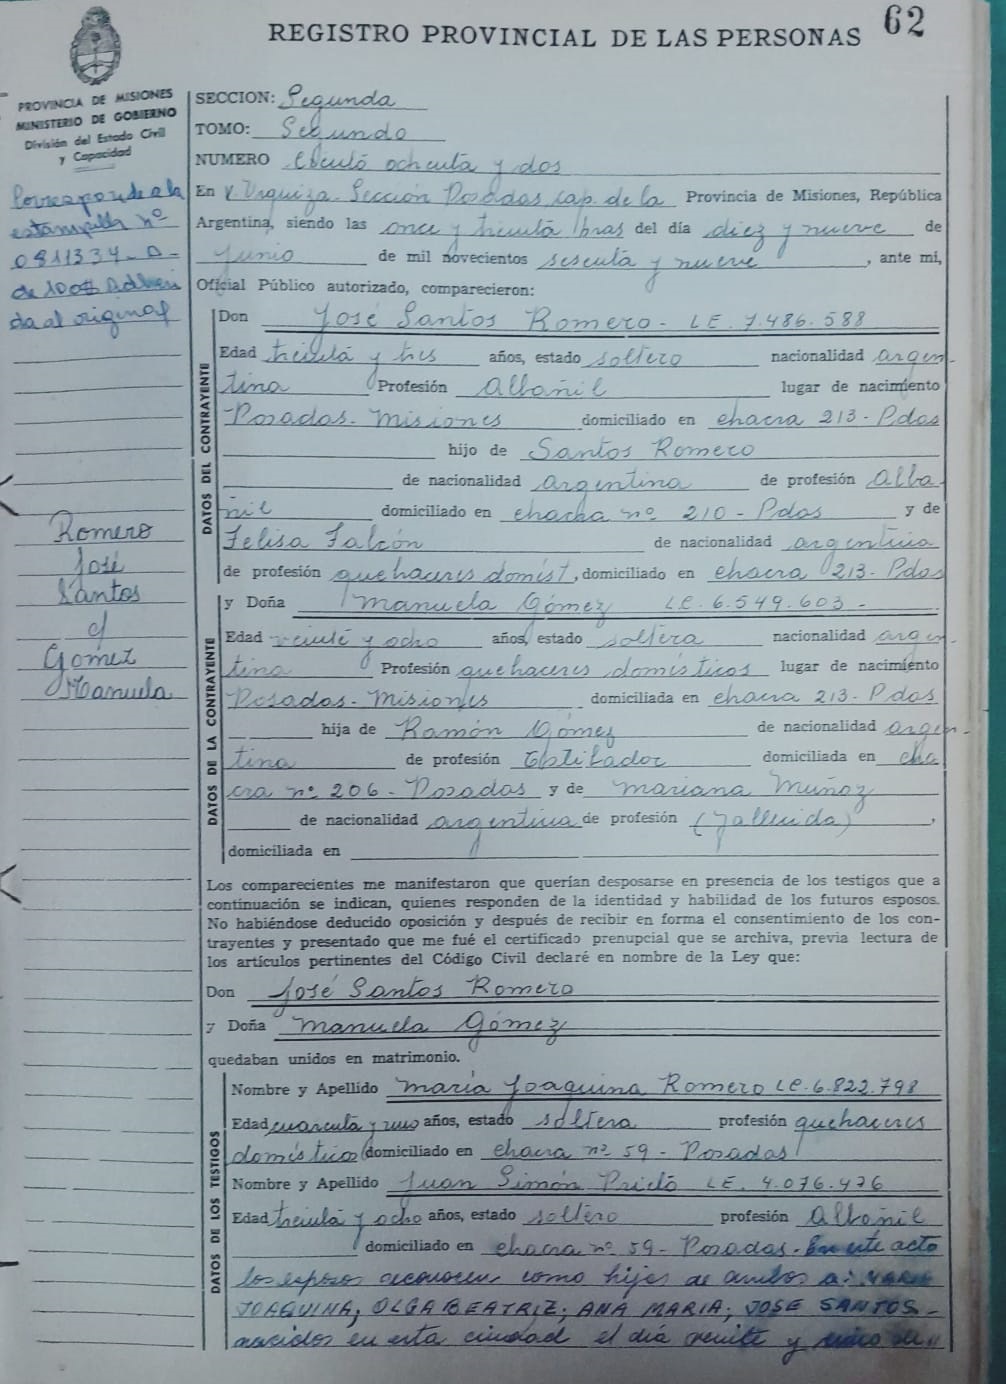 REGISTRO PROVINCIAL DE LAS PERSONAS 62
PROVINCIA DE MISIONES
MINISTERIO DE GOBIERNO
División del Estado Civil
y Capacidad
Corresponde a la
estampilla nº
0811334-D-
de 100$ adheri
da al original
Romero
José
Santos
c/
Gómez
Manuela
SECCION: Segunda
TOMO: Segundo
NUMERO Ciento ochenta y dos
En V. Urquiza. Sección Posadas cap. de la Provincia de Misiones, República
Argentina, siendo las once y treinta horas del día diez y nueve de
Junio de mil novecientos sesenta y nueve, ante mi,
Oficial Público autorizado, comparecieron:
DATOS DEL CONTRAYENTE
Don José Santos Romero - LE. 7.486.588
Edad treinta y tres años, estado soltero nacionalidad argen-
tina Profesión Albañil lugar de nacimiento
Posadas - Misiones domiciliado en chacra 213 - Pdas
hijo de Santos Romero
de nacionalidad argentina de profesión Alba-
ñil domiciliado en chacra nº 210 - Pdas y de
Felisa Falcón de nacionalidad argentina
de profesión quehaceres domést, domiciliado en chacra 213 - Pdas
DATOS DE LA CONTRAYENTE
y Doña Manuela Gómez LC. 6.549.603 -
Edad veinte y ocho años, estado soltera nacionalidad argen-
tina Profesión quehaceres domésticos lugar de nacimiento
Posadas - Misiones domiciliada en chacra 213 - Pdas
hija de Ramón Gómez de nacionalidad argen-
tina de profesión domiciliada en cha
cra nº 206 - Posadas y de Mariana Muñoz
de nacionalidad argentina de profesión (fallecida),
domiciliada en
Los comparecientes me manifestaron que querían desposarse en presencia de los testigos que a
continuación se indican, quienes responden de la identidad y habilidad de los futuros esposos.
No habiéndose deducido oposición y después de recibir en forma el consentimiento de los con-
trayentes y presentado que me fué el certificado prenupcial que se archiva, previa lectura de
los artículos pertinentes del Código Civil declaré en nombre de la Ley que:
Don José Santos Romero
y Doña Manuela Gómez
quedaban unidos en matrimonio.
DATOS DE LOS TESTIGOS
Nombre y Apellido María Joaquina Romero LC. 6.822.798
Edad cuarenta y uno años, estado soltera profesión quehaceres
domésticos domiciliado en chacra nº 59 - Posadas
Nombre y Apellido Juan Simón Prieto LE. 4.076.476
Edad treinta y ocho años, estado soltero profesión Albañil
domiciliado en chacra nº 59 - Posadas. En este acto
los esposos reconocen como hijos de ambos a: MARIA
JOAQUINA; OLGA BEATRIZ; ANA MARIA; JOSE SANTOS -
nacidos en esta ciudad el día veinte y de,,